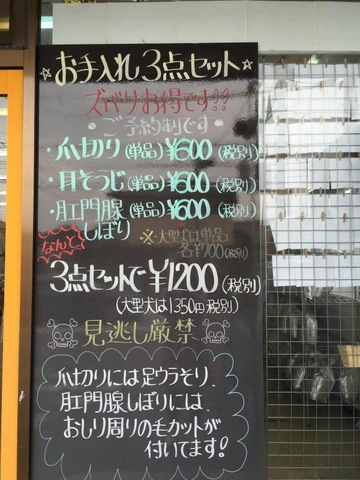 ☆お手入れ3点セット☆
ズバリお得です!!
・ご予約制です・
・爪切り(単品)¥600(税別)
・耳そうじ(単品)¥600(税別)
・肛門腺しぼり(単品)¥600(税別)
※大型犬は単品各¥700(税別)
なんと!
3点セットで¥1200(税別)
(大型犬は1350円税別)
見逃し厳禁
爪切りには足ウラそり、
肛門腺しぼりには、
おしり周りの毛カットが
付いてます!